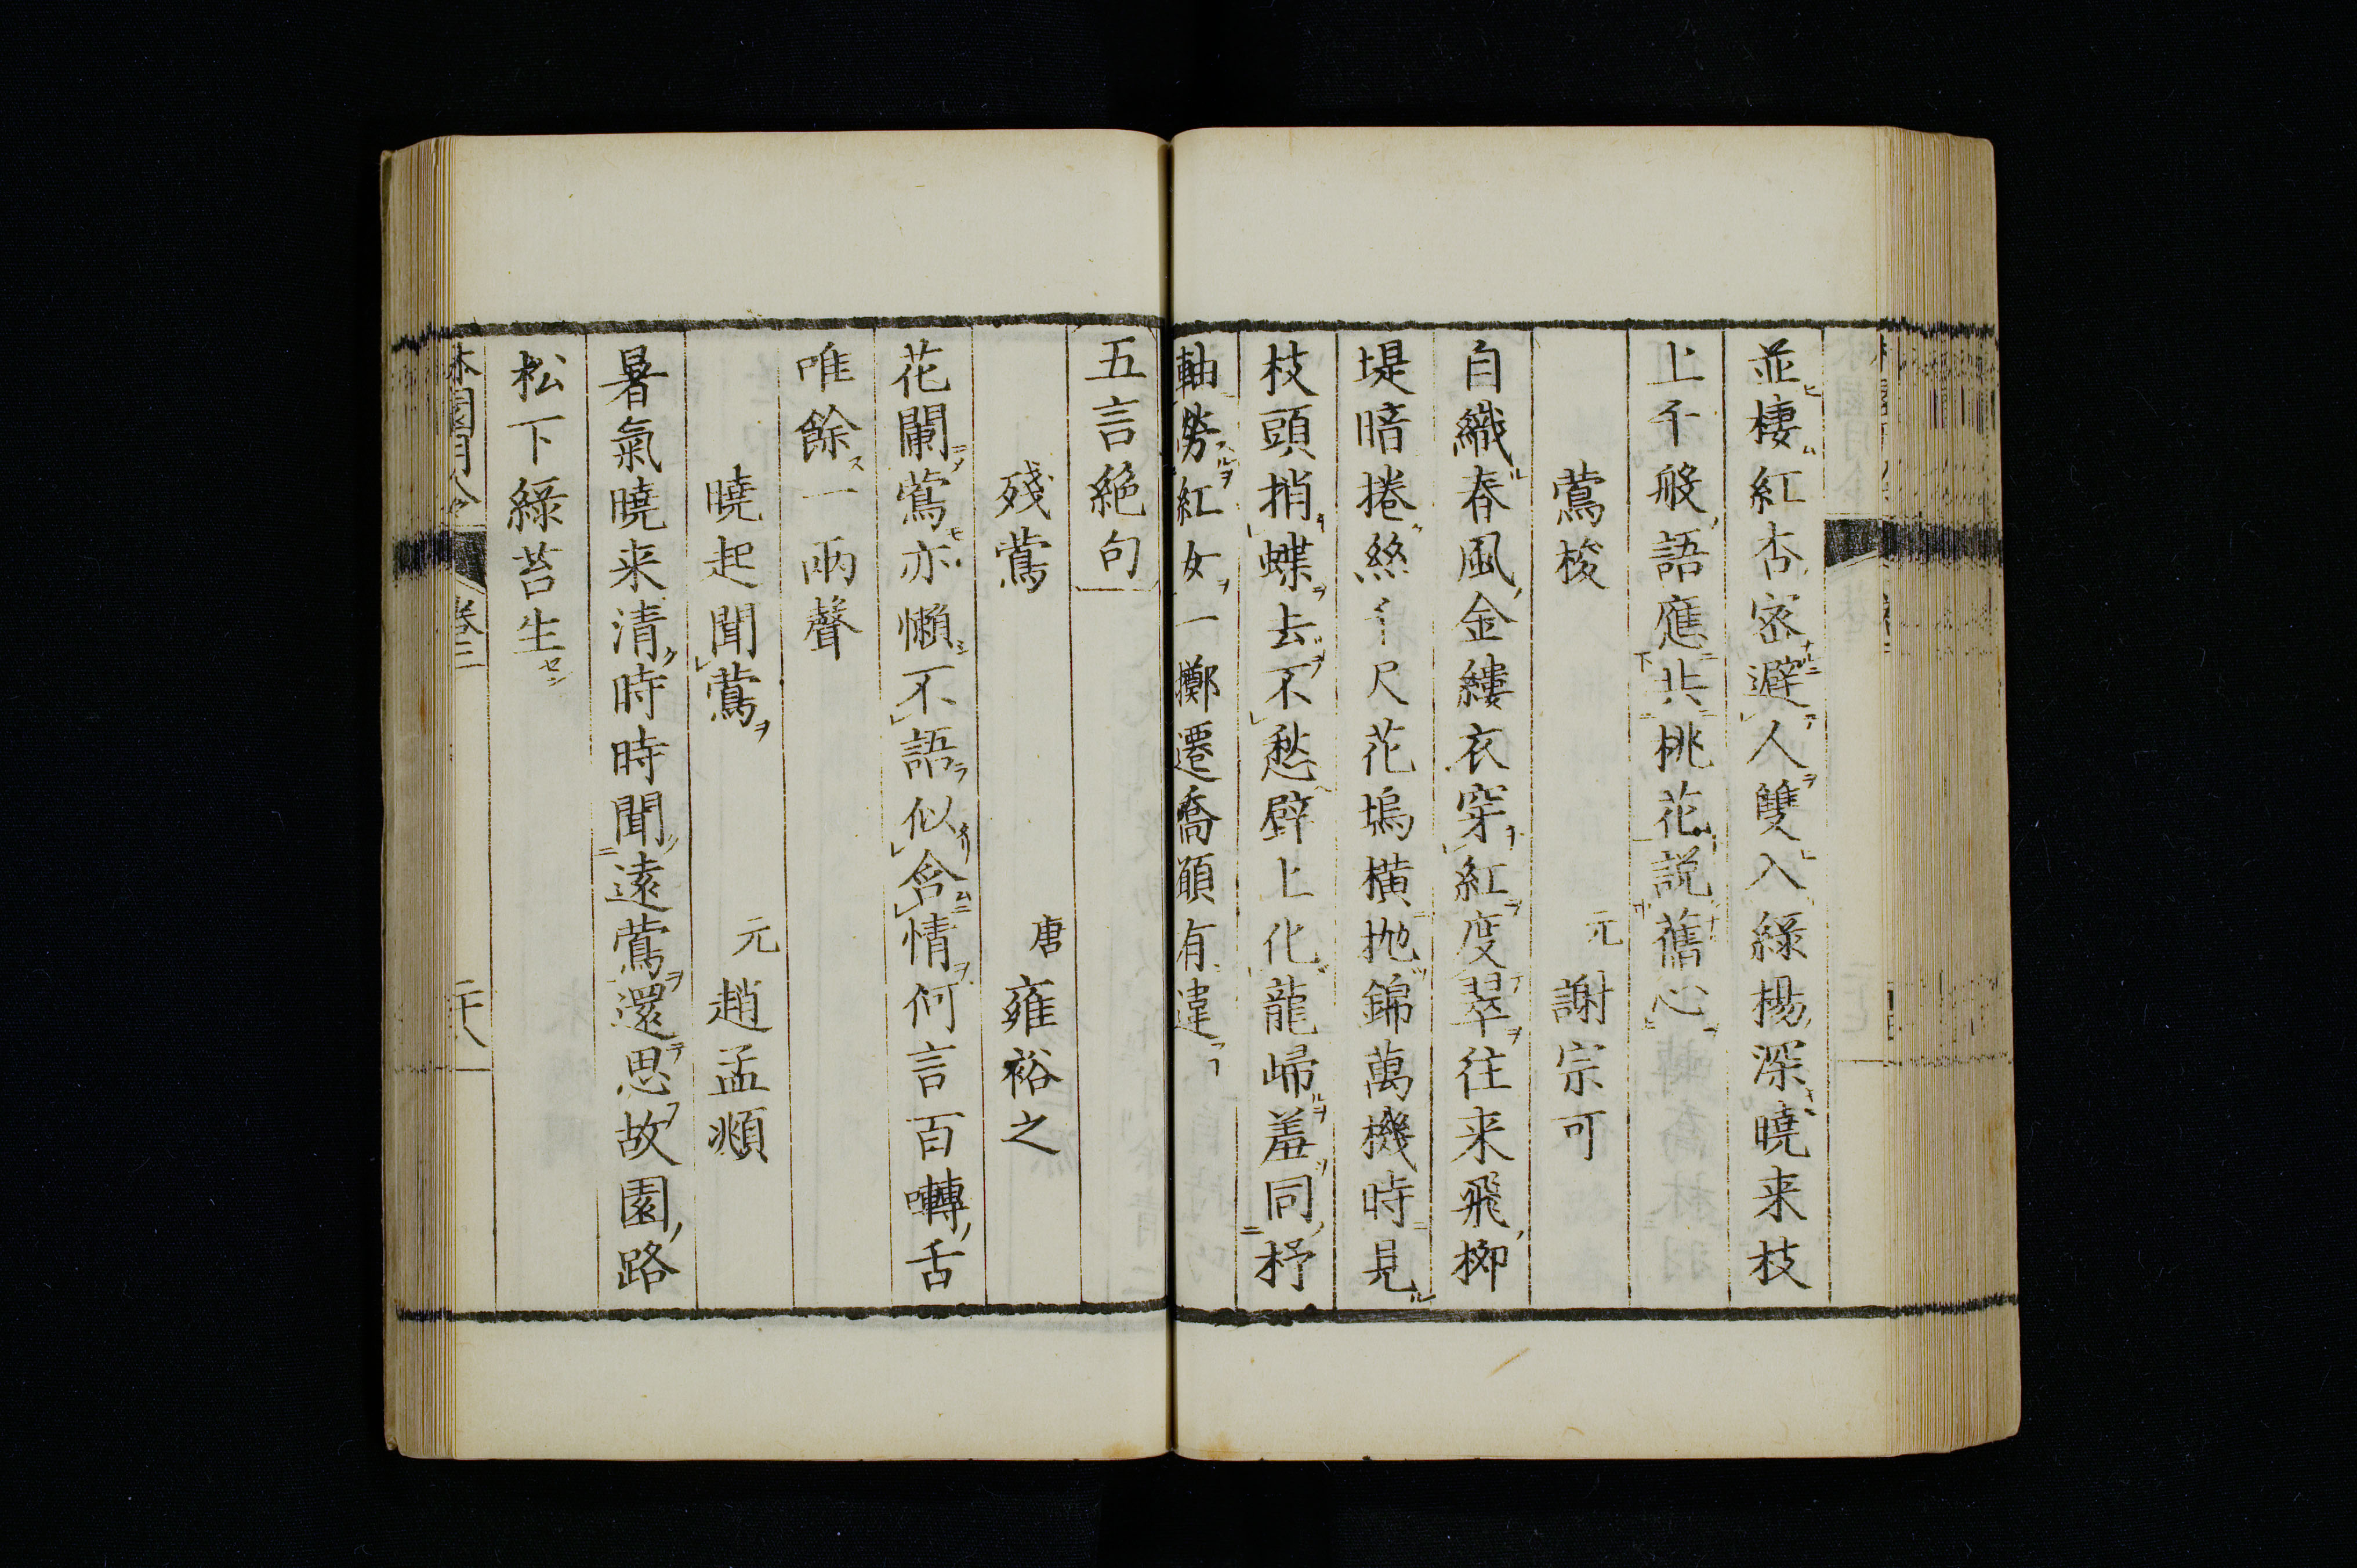 並棲紅杏密避人雙入綠楊深曉来枝
上千般語應共桃花説舊心
鶯梭 元 謝宗可
自織春風金縷衣穿紅度翠往来飛柳
堤暗捲絲千尺花塢横抛錦萬機時見
枝頭捎蝶去不愁壁上化龍歸羞同杼
軸勞紅女一擲遷喬願有違
五言絶句
殘鶯 唐 雍裕之
花闌鶯亦懶不語似含情何言百囀舌
唯餘一兩聲
曉起聞鶯 元 趙孟頫
暑氣曉来清時時聞遠鶯還思故園路
松下綠苔生
卷三 二十八